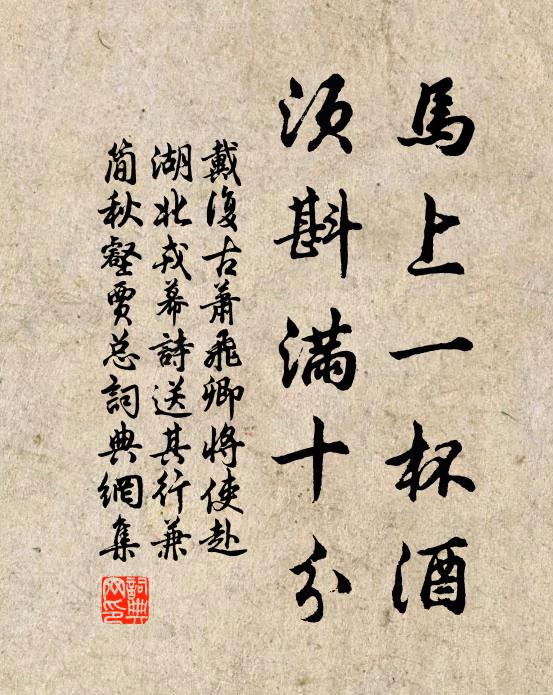 馬上一杯酒
須斟滿十分
戴復古蕭飛卿將使赴
湖北戎幕詩送其行兼
簡秋壑賈总詞典網集
詞典网印